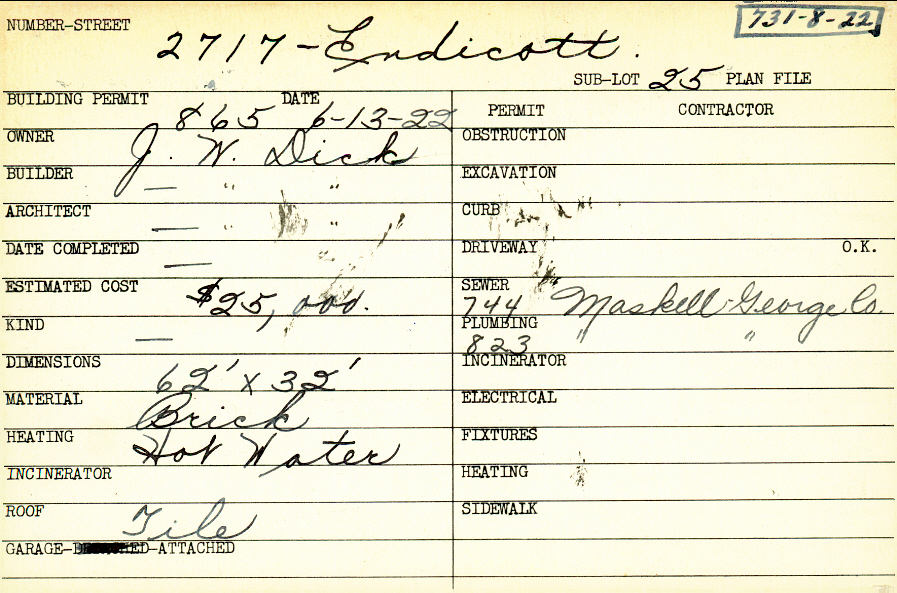 NUMBER-STREET 2717-Endicott. 731-8-22
SUB-LOT 25 PLAN FILE
BUILDING PERMIT 865 DATE 6-13-22
PERMIT CONTRACTOR
OWNER J. W. Dick
OBSTRUCTION
BUILDER — " "
EXCAVATION
ARCHITECT — " "
CURB
DATE COMPLETED —
DRIVEWAY O.K.
ESTIMATED COST $25,000.
SEWER 744 Maskell-George Co.
KIND —
PLUMBING 823 " "
DIMENSIONS 62' x 32'
INCINERATOR
MATERIAL Brick
ELECTRICAL
HEATING Hot Water
FIXTURES
INCINERATOR
HEATING
ROOF Tile
SIDEWALK
GARAGE- -ATTACHED